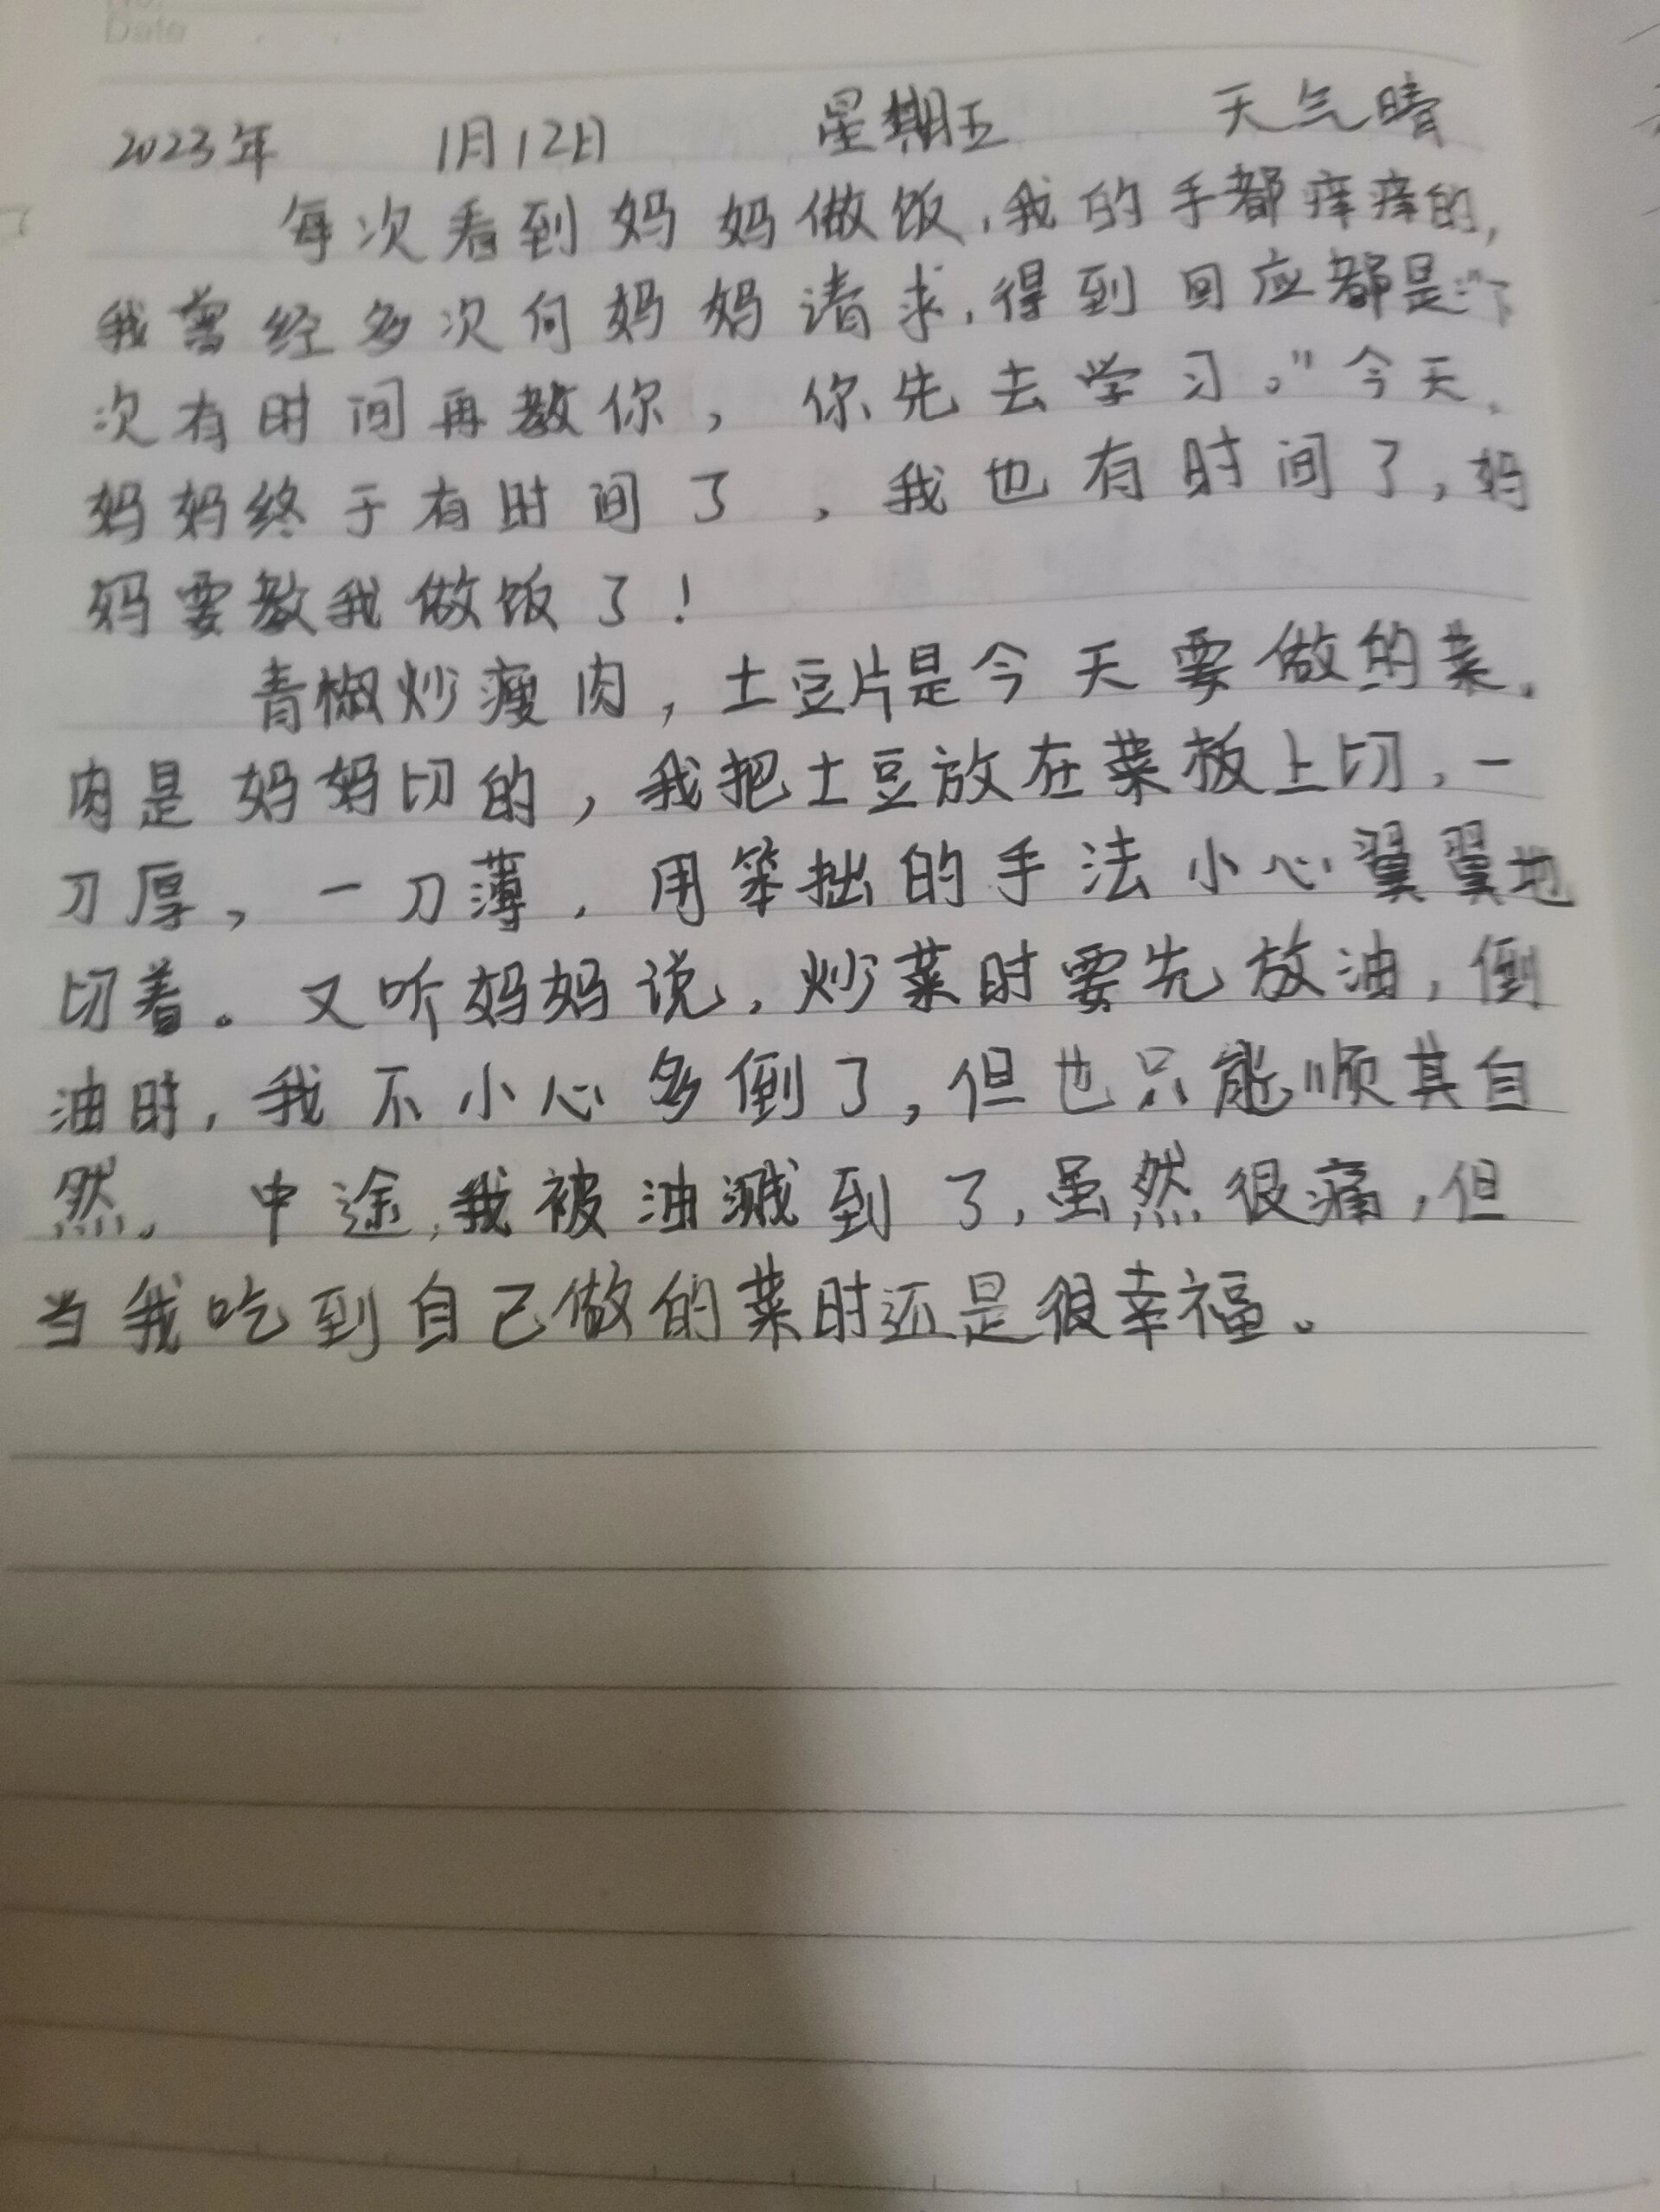 Date
2023年 1月12日 星期五 天气晴
每次看到妈妈做饭,我的手都痒痒的,
我曾经多次向妈妈请求,得到回应都是“下
次有时间再教你,你先去学习。”今天,
妈妈终于有时间了,我也有时间了,妈
妈要教我做饭了!
青椒炒瘦肉,土豆片是今天要做的菜,
肉是妈妈切的,我把土豆放在菜板上切,一
刀厚,一刀薄,用笨拙的手法小心翼翼地
切着。又听妈妈说,炒菜时要先放油,倒
油时,我不小心多倒了,但也只能顺其自
然。中途,我被油溅到了,虽然很痛,但
当我吃到自己做的菜时还是很幸福。